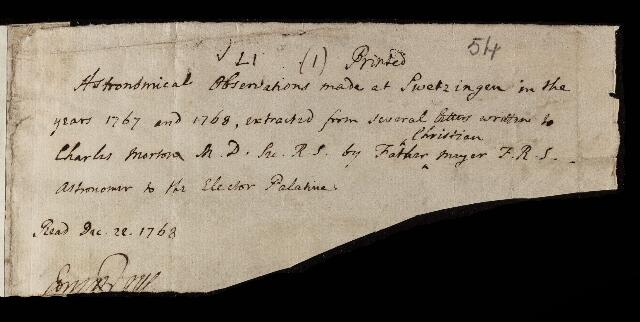 √ LI (1) Printed 54
Astronomical Observations made at Swetzingen in the
years 1767 and 1768, extracted from several letters written to
Christian
Charles Morton M. D. Sec. R. S. by Father ^ Mayer F. R. S.
Astronomer to the Elector Palatine.
Read Dec. 22. 1768